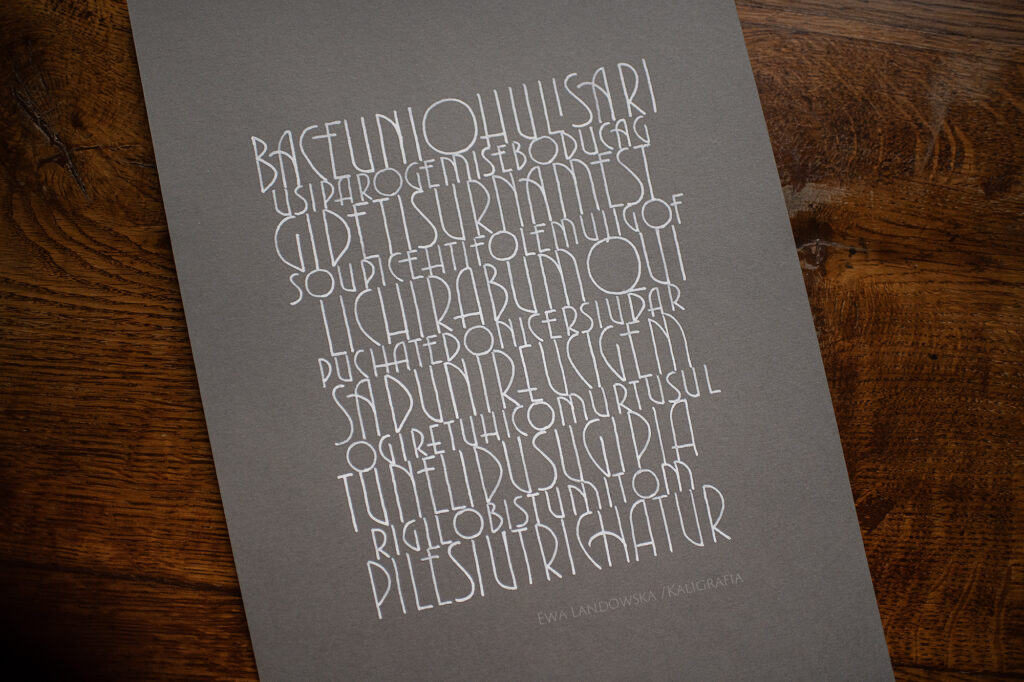 BACEUNIOHULISARI
USIPAROGEMISEBODUCAG
GIDETISURNAMEST
SOUPICEHTIFOLEMUIGOF
LICHIRABUMOUI
PUCHATEDONICERSIUPAR
SADUNRELICIGEM
OGIRETUHICOMURTUSUL
TUNELIBUSUGIPIA
RIGILOBISTUMITOM
PILESIUTRICHATUR
EWA LANDOWSKA /KALIGRAFIA